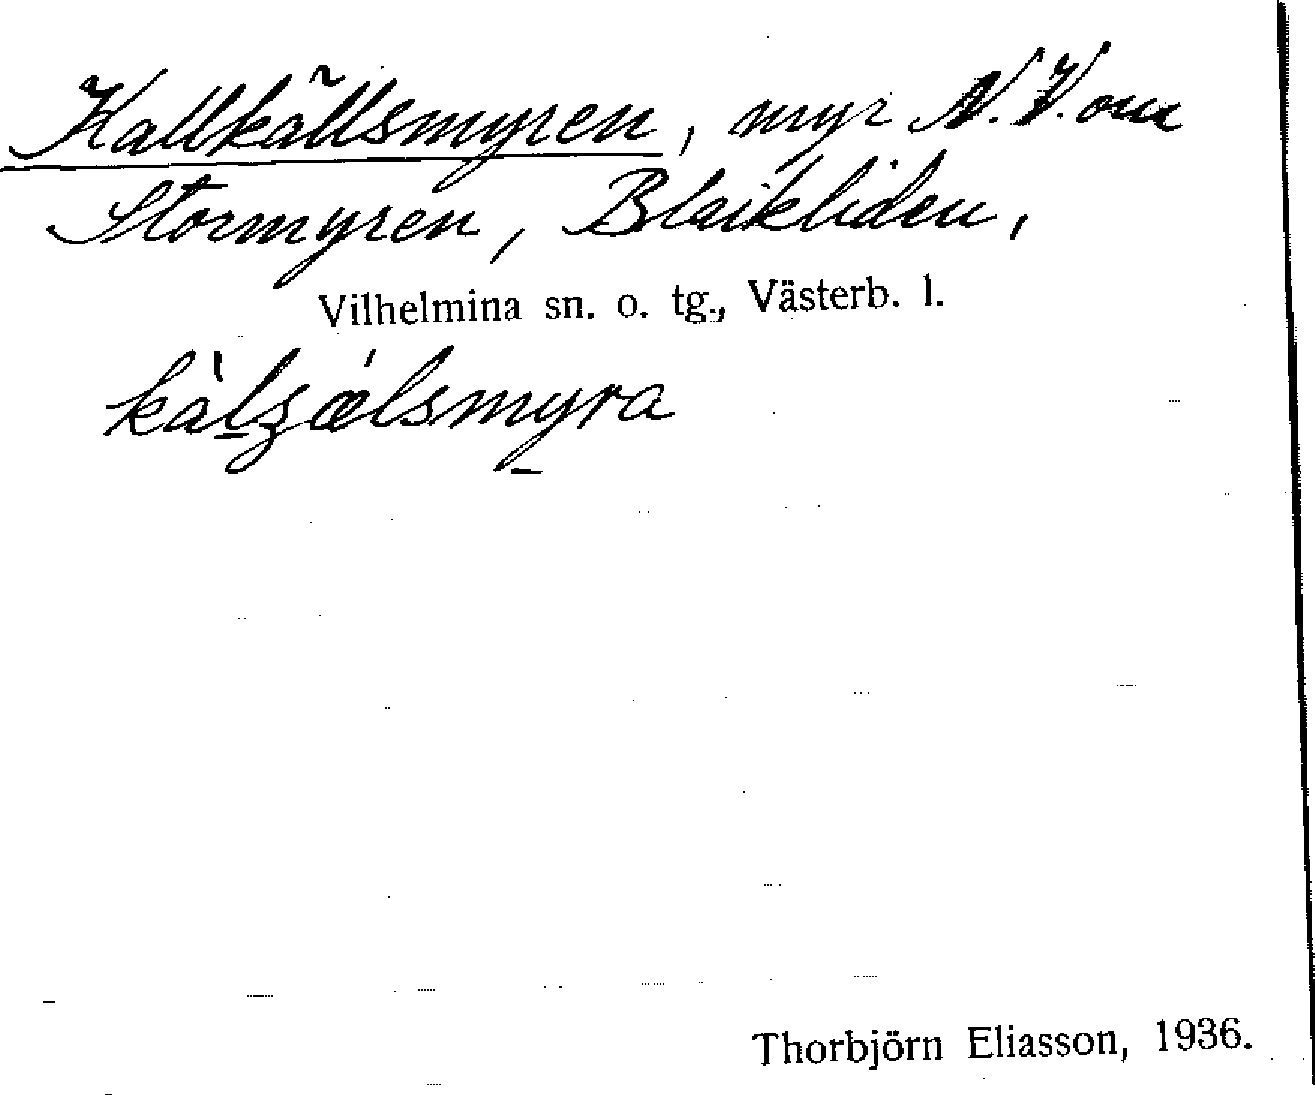 Kallkällsmyren, myr N.V. om
Stormyren, Blaikliden,
Vilhelmina sn. o. tg., Västerb. l.
kàlʒǽlsmyra
Thorbjörn Eliasson, 1936.